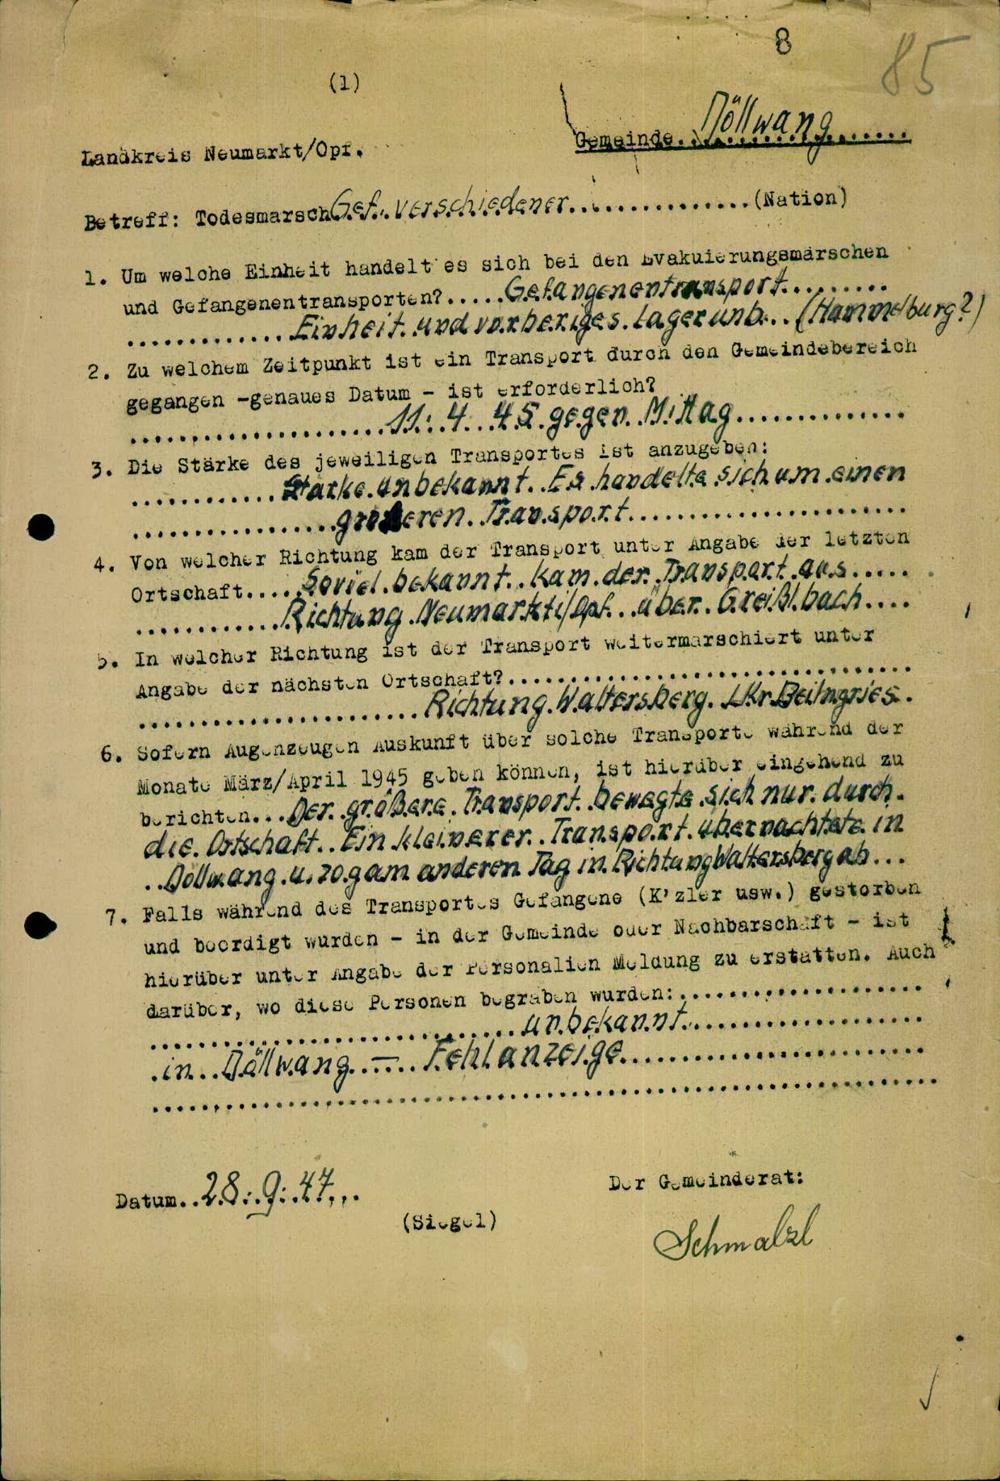 8
85
(1)
Gemeinde..Döllwang......
Landkreis Neumarkt/Opf.
Betreff: Todesmarsch Gef. verschiedener................(Nation)
1. Um welche Einheit handelt es sich bei den Evakuierungsmärschen
und Gefangenentransporten?.....Gefangenentransport.........
.............Einheit und vorheriges Lager unb... (Hammelburg?)
2. Zu welchem Zeitpunkt ist ein Transport durch den Gemeindebereich
gegangen -genaues Datum - ist erforderlich?
......................11. 4. 45. gegen Mittag..............
3. Die Stärke des jeweiligen Transportes ist anzugeben:
............Stärke unbekannt. Es handelte sich um einen
.................größeren Transport......................
4. Von welcher Richtung kam der Transport unter Angabe der letzten
Ortschaft.....Soviel bekannt kam der Transport aus.....
............Richtung Neumarkt i/Opf. über Greißlbach....
5. In welcher Richtung ist der Transport weitermarschiert unter
Angabe der nächsten Ortschaft?...............................
.......................Richtung Waltersberg. LKr. Beilngries.
6. Sofern Augenzeugen Auskunft über solche Transporte während der
Monate März/April 1945 geben können, ist hierüber eingehend zu
berichten...Der größere Transport bewegte sich nur durch
die Ortschaft. Ein kleinerer Transport übernachtete in
..Döllwang u. zog am anderen Tag in Richtung Waltersberg ab...
7. Falls während des Transportes Gefangene (K'zler usw.) gestorben
und beerdigt wurden - in der Gemeinde oder Nachbarschaft - ist
hierüber unter Angabe der Personalien Meldung zu erstatten. Auch
darüber, wo diese Personen begraben wurden:...................
...........................unbekannt..................
.in..Döllwang — Fehlanzeige.........................
..............................................................
Datum..28. 9. 47...
(Siegel)
Der Gemeinderat:
Schmalzl